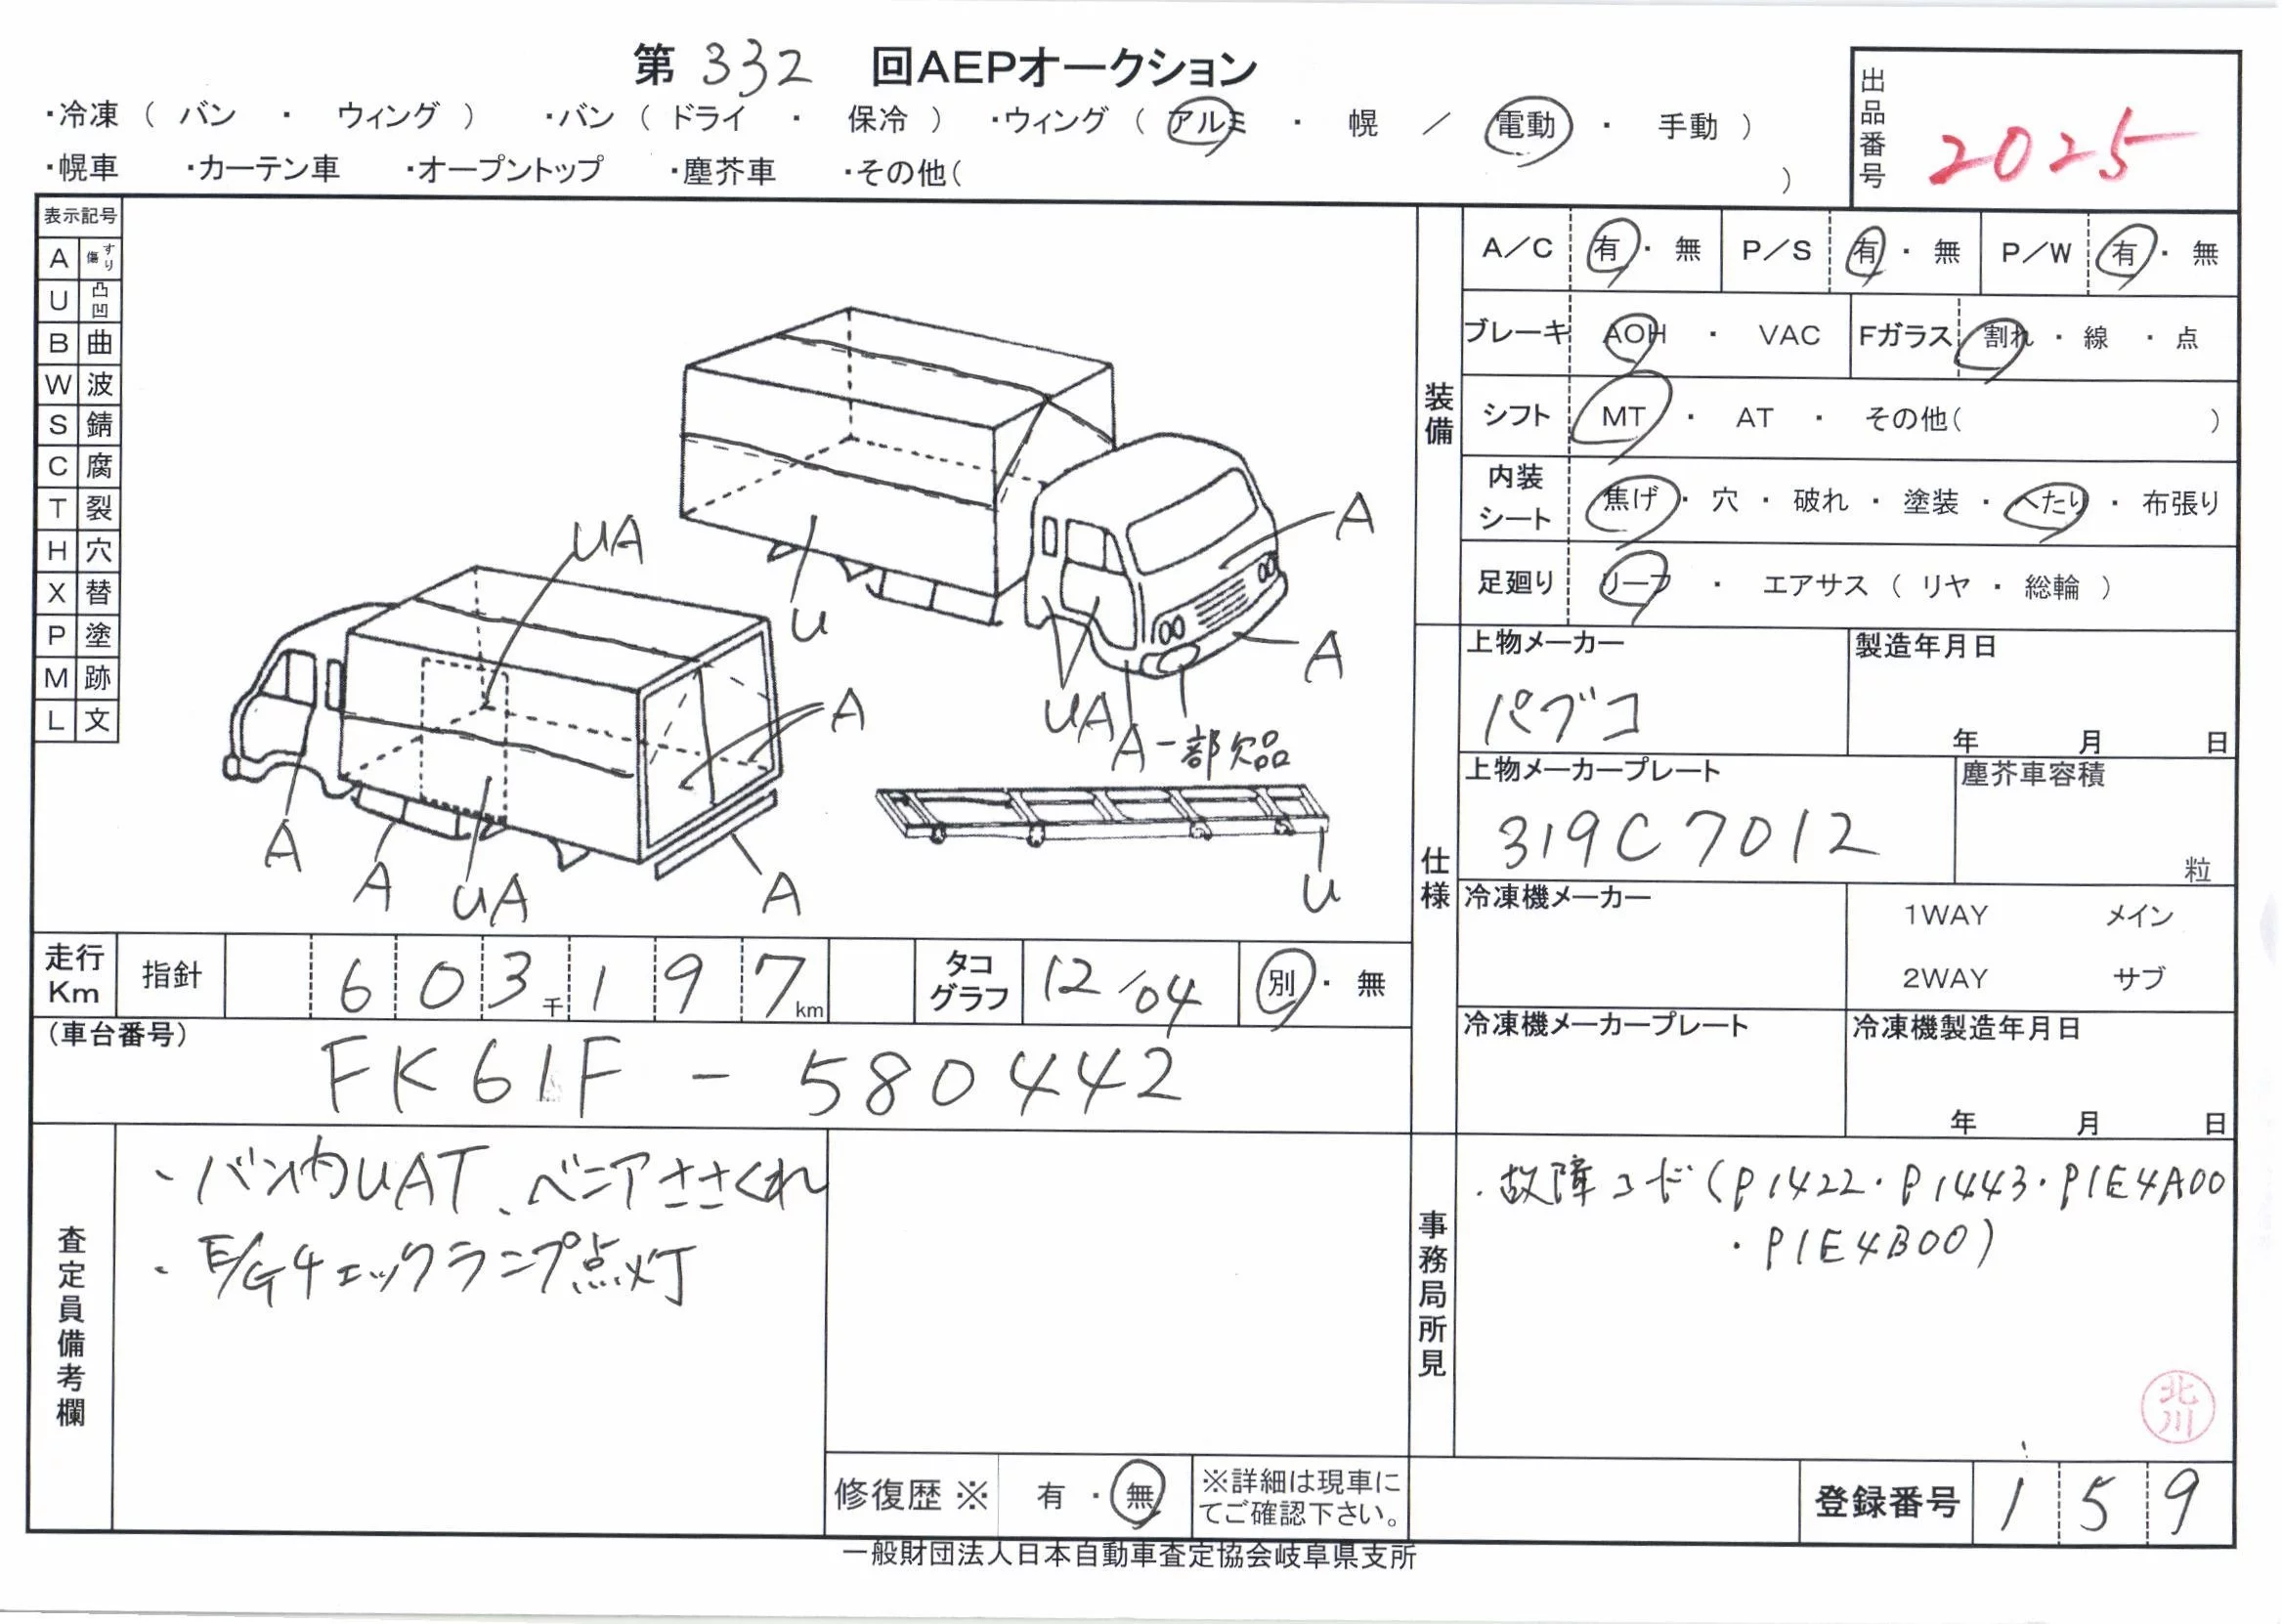 第 332 回AEPオークション
・冷凍 ( バン ・ ウィング ) ・バン ( ドライ ・ 保冷 ) ・ウィング ( アルミ ・ 幌 ／ 電動 ・ 手動 )
・幌車 ・カーテン車 ・オープントップ ・塵芥車 ・その他( )
出品番号 2025
表示記号
A すり傷
U 凸凹
B 曲
W 波
S 錆
C 腐
T 裂
H 穴
X 替
P 塗
M 跡
L 文
UA
U
A
A
UA
A一部欠品
A
A
A
UA
A
U
装備
A／C 有・無 P／S 有・無 P／W 有・無
ブレーキ AOH ・ VAC Fガラス 割れ・線・点
シフト MT ・ AT ・ その他( )
内装シート 焦げ・穴・破れ・塗装・へたり・布張り
足廻り リーフ ・ エアサス ( リヤ ・ 総輪 )
仕様
上物メーカー 製造年月日
パブコ
年 月 日
上物メーカープレート 塵芥車容積
319C7012
粒
冷凍機メーカー 1WAY メイン
2WAY サブ
冷凍機メーカープレート 冷凍機製造年月日
年 月 日
走行Km 指針 603千197km タコグラフ 12/04 別・無
(車台番号)
FK61F - 580442
査定員備考欄
・バン内UAT、ベニアささくれ
・E/Gチェックランプ点灯
修復歴※ 有・無 ※詳細は現車にてご確認下さい。
事務局所見
・故障コード(P1422・P1443・P1E4A00
・P1E4B00)
北川
登録番号 159
一般財団法人日本自動車査定協会岐阜県支所